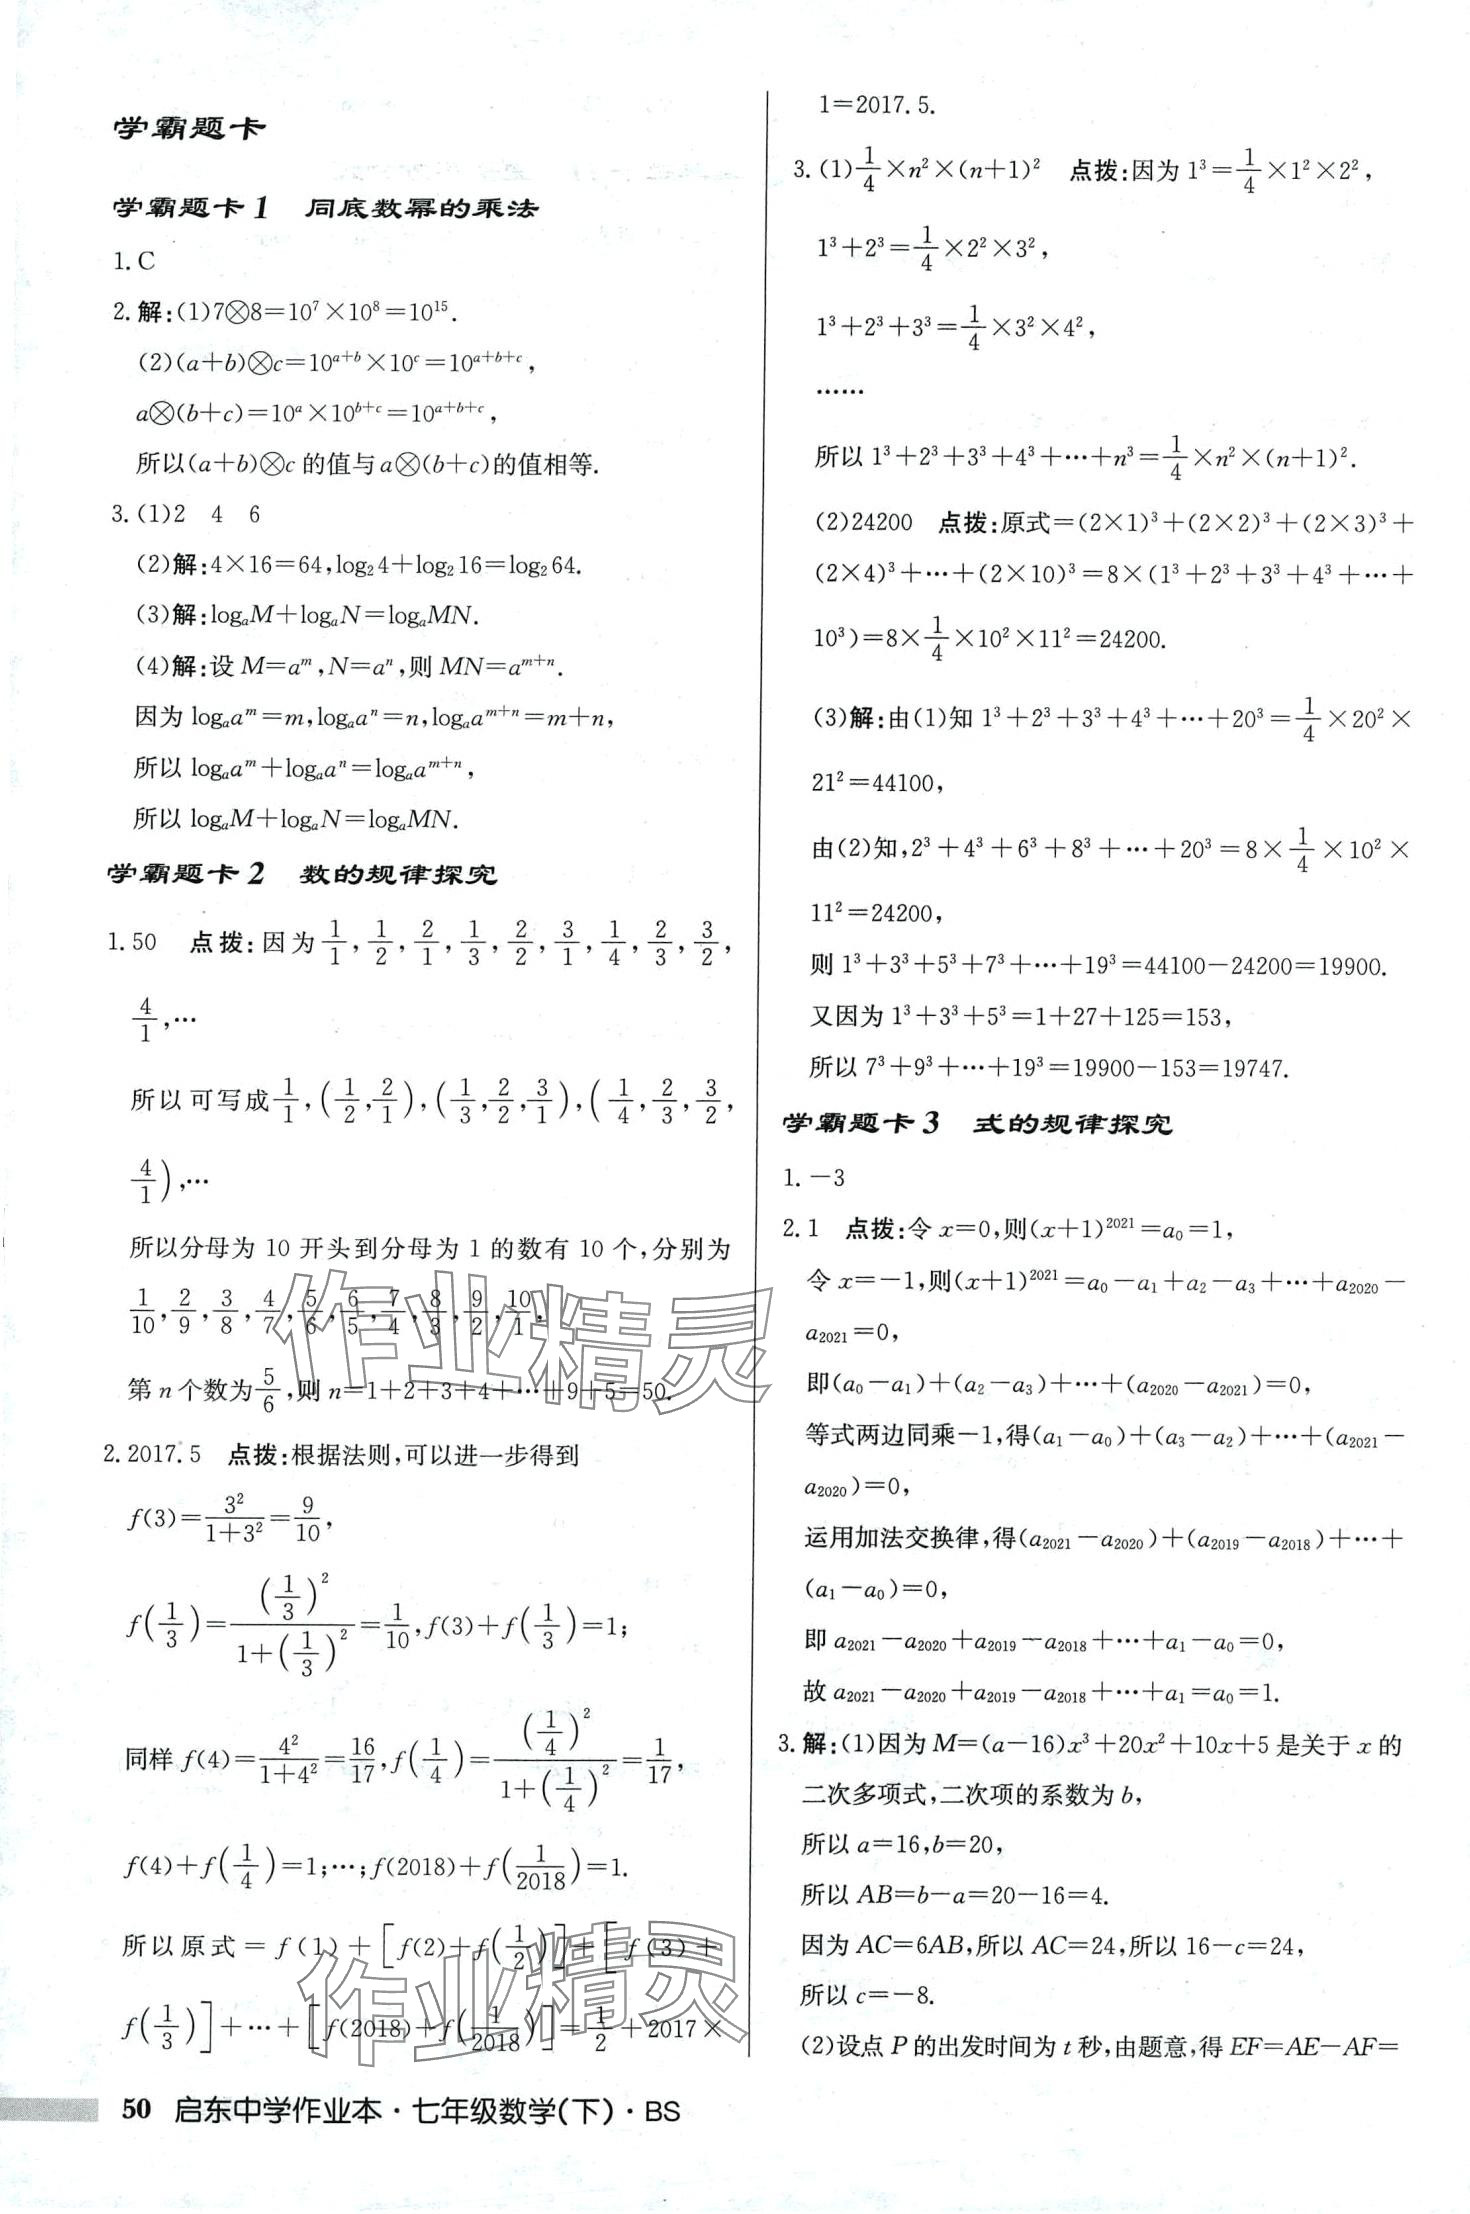 学霸题卡
学霸题卡1 同底数幂的乘法
1.C
2.解:(1)7⊗8=10⁷×10⁸=10¹⁵.
(2)(a+b)⊗c=10ᵃ⁺ᵇ×10ᶜ=10ᵃ⁺ᵇ⁺ᶜ,
a⊗(b+c)=10ᵃ×10ᵇ⁺ᶜ=10ᵃ⁺ᵇ⁺ᶜ,
所以(a+b)⊗c的值与a⊗(b+c)的值相等.
3.(1)2 4 6
(2)解:4×16=64,log₂4+log₂16=log₂64.
(3)解:logₐM+logₐN=logₐMN.
(4)解:设M=aᵐ,N=aⁿ,则MN=aᵐ⁺ⁿ.
因为logₐaᵐ=m,logₐaⁿ=n,logₐaᵐ⁺ⁿ=m+n,
所以logₐaᵐ+logₐaⁿ=logₐaᵐ⁺ⁿ,
所以logₐM+logₐN=logₐMN.
学霸题卡2 数的规律探究
1.50 点拨:因为1/1,1/2,2/1,1/3,2/2,3/1,1/4,2/3,3/2,
4/1,…
所以可写成1/1,(1/2,2/1),(1/3,2/2,3/1),(1/4,2/3,3/2,
4/1),…
所以分母为10开头到分母为1的数有10个,分别为
1/10,2/9,3/8,4/7,5/6,6/5,7/4,8/3,9/2,10/1,
第n个数为5/6,则n=1+2+3+4+…+9+5=50.
2.2017.5 点拨:根据法则,可以进一步得到
f(3)=3²/(1+3²)=9/10,
f(1/3)=(1/3)²/(1+(1/3)²)=1/10,f(3)+f(1/3)=1;
同样f(4)=4²/(1+4²)=16/17,f(1/4)=(1/4)²/(1+(1/4)²)=1/17,
f(4)+f(1/4)=1;…;f(2018)+f(1/2018)=1.
所以原式=f(1)+[f(2)+f(1/2)]+[f(3)+
f(1/3)]+…+[f(2018)+f(1/2018)]=1/2+2017×
1=2017.5.
3.(1)1/4×n²×(n+1)² 点拨:因为1³=1/4×1²×2²,
1³+2³=1/4×2²×3²,
1³+2³+3³=1/4×3²×4²,
……
所以1³+2³+3³+4³+…+n³=1/4×n²×(n+1)².
(2)24200 点拨:原式=(2×1)³+(2×2)³+(2×3)³+
(2×4)³+…+(2×10)³=8×(1³+2³+3³+4³+…+
10³)=8×1/4×10²×11²=24200.
(3)解:由(1)知1³+2³+3³+4³+…+20³=1/4×20²×
21²=44100,
由(2)知,2³+4³+6³+8³+…+20³=8×1/4×10²×
11²=24200,
则1³+3³+5³+7³+…+19³=44100-24200=19900.
又因为1³+3³+5³=1+27+125=153,
所以7³+9³+…+19³=19900-153=19747.
学霸题卡3 式的规律探究
1.-3
2.1 点拨:令x=0,则(x+1)²⁰²¹=a₀=1,
令x=-1,则(x+1)²⁰²¹=a₀-a₁+a₂-a₃+…+a₂₀₂₀-
a₂₀₂₁=0,
即(a₀-a₁)+(a₂-a₃)+…+(a₂₀₂₀-a₂₀₂₁)=0,
等式两边同乘-1,得(a₁-a₀)+(a₃-a₂)+…+(a₂₀₂₁-
a₂₀₂₀)=0,
运用加法交换律,得(a₂₀₂₁-a₂₀₂₀)+(a₂₀₁₉-a₂₀₁₈)+…+
(a₁-a₀)=0,
即a₂₀₂₁-a₂₀₂₀+a₂₀₁₉-a₂₀₁₈+…+a₁-a₀=0,
故a₂₀₂₁-a₂₀₂₀+a₂₀₁₉-a₂₀₁₈+…+a₁=a₀=1.
3.解:(1)因为M=(a-16)x³+20x²+10x+5是关于x的
二次多项式,二次项的系数为b,
所以a=16,b=20,
所以AB=b-a=20-16=4.
因为AC=6AB,所以AC=24,所以16-c=24,
所以c=-8.
(2)设点P的出发时间为t秒,由题意,得EF=AE-AF=
作业精灵
作业精灵
50 启东中学作业本·七年级数学(下)·BS